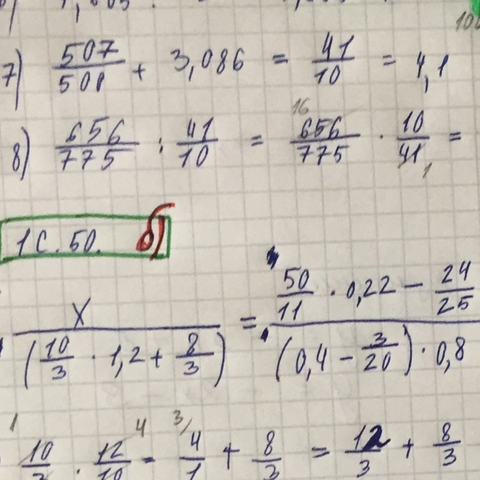 7) 507/500 + 3,086 = 41/10 = 4,1
8) 656/775 : 41/10 = 656/775 · 10/41 =
16
1
1С.50. б)
X/(10/3 · 1,2 + 8/3) = (50/11 · 0,22 − 24/25)/((0,4 − 3/20) · 0,8
10/3 · 12/10 = 4/1 + 8/3 = 12/3 + 8/3